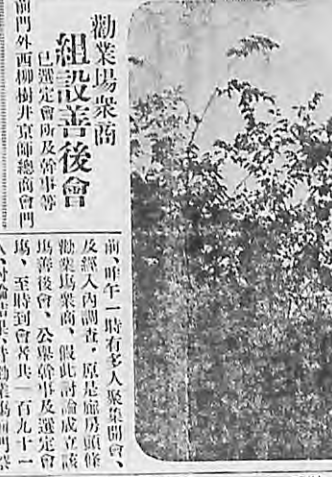 勸業塲衆商
組設善後會
已選定會所及幹事等
前門外西柳樹井京師總商會門
前、昨午一時有多人聚集開會、
及經入內調查，原是廊房頭條
勸業塲衆商、假此討論成立該
塲善後會、公舉幹事及選定會
塲、至時到會者共一百九十一
人討論結果、